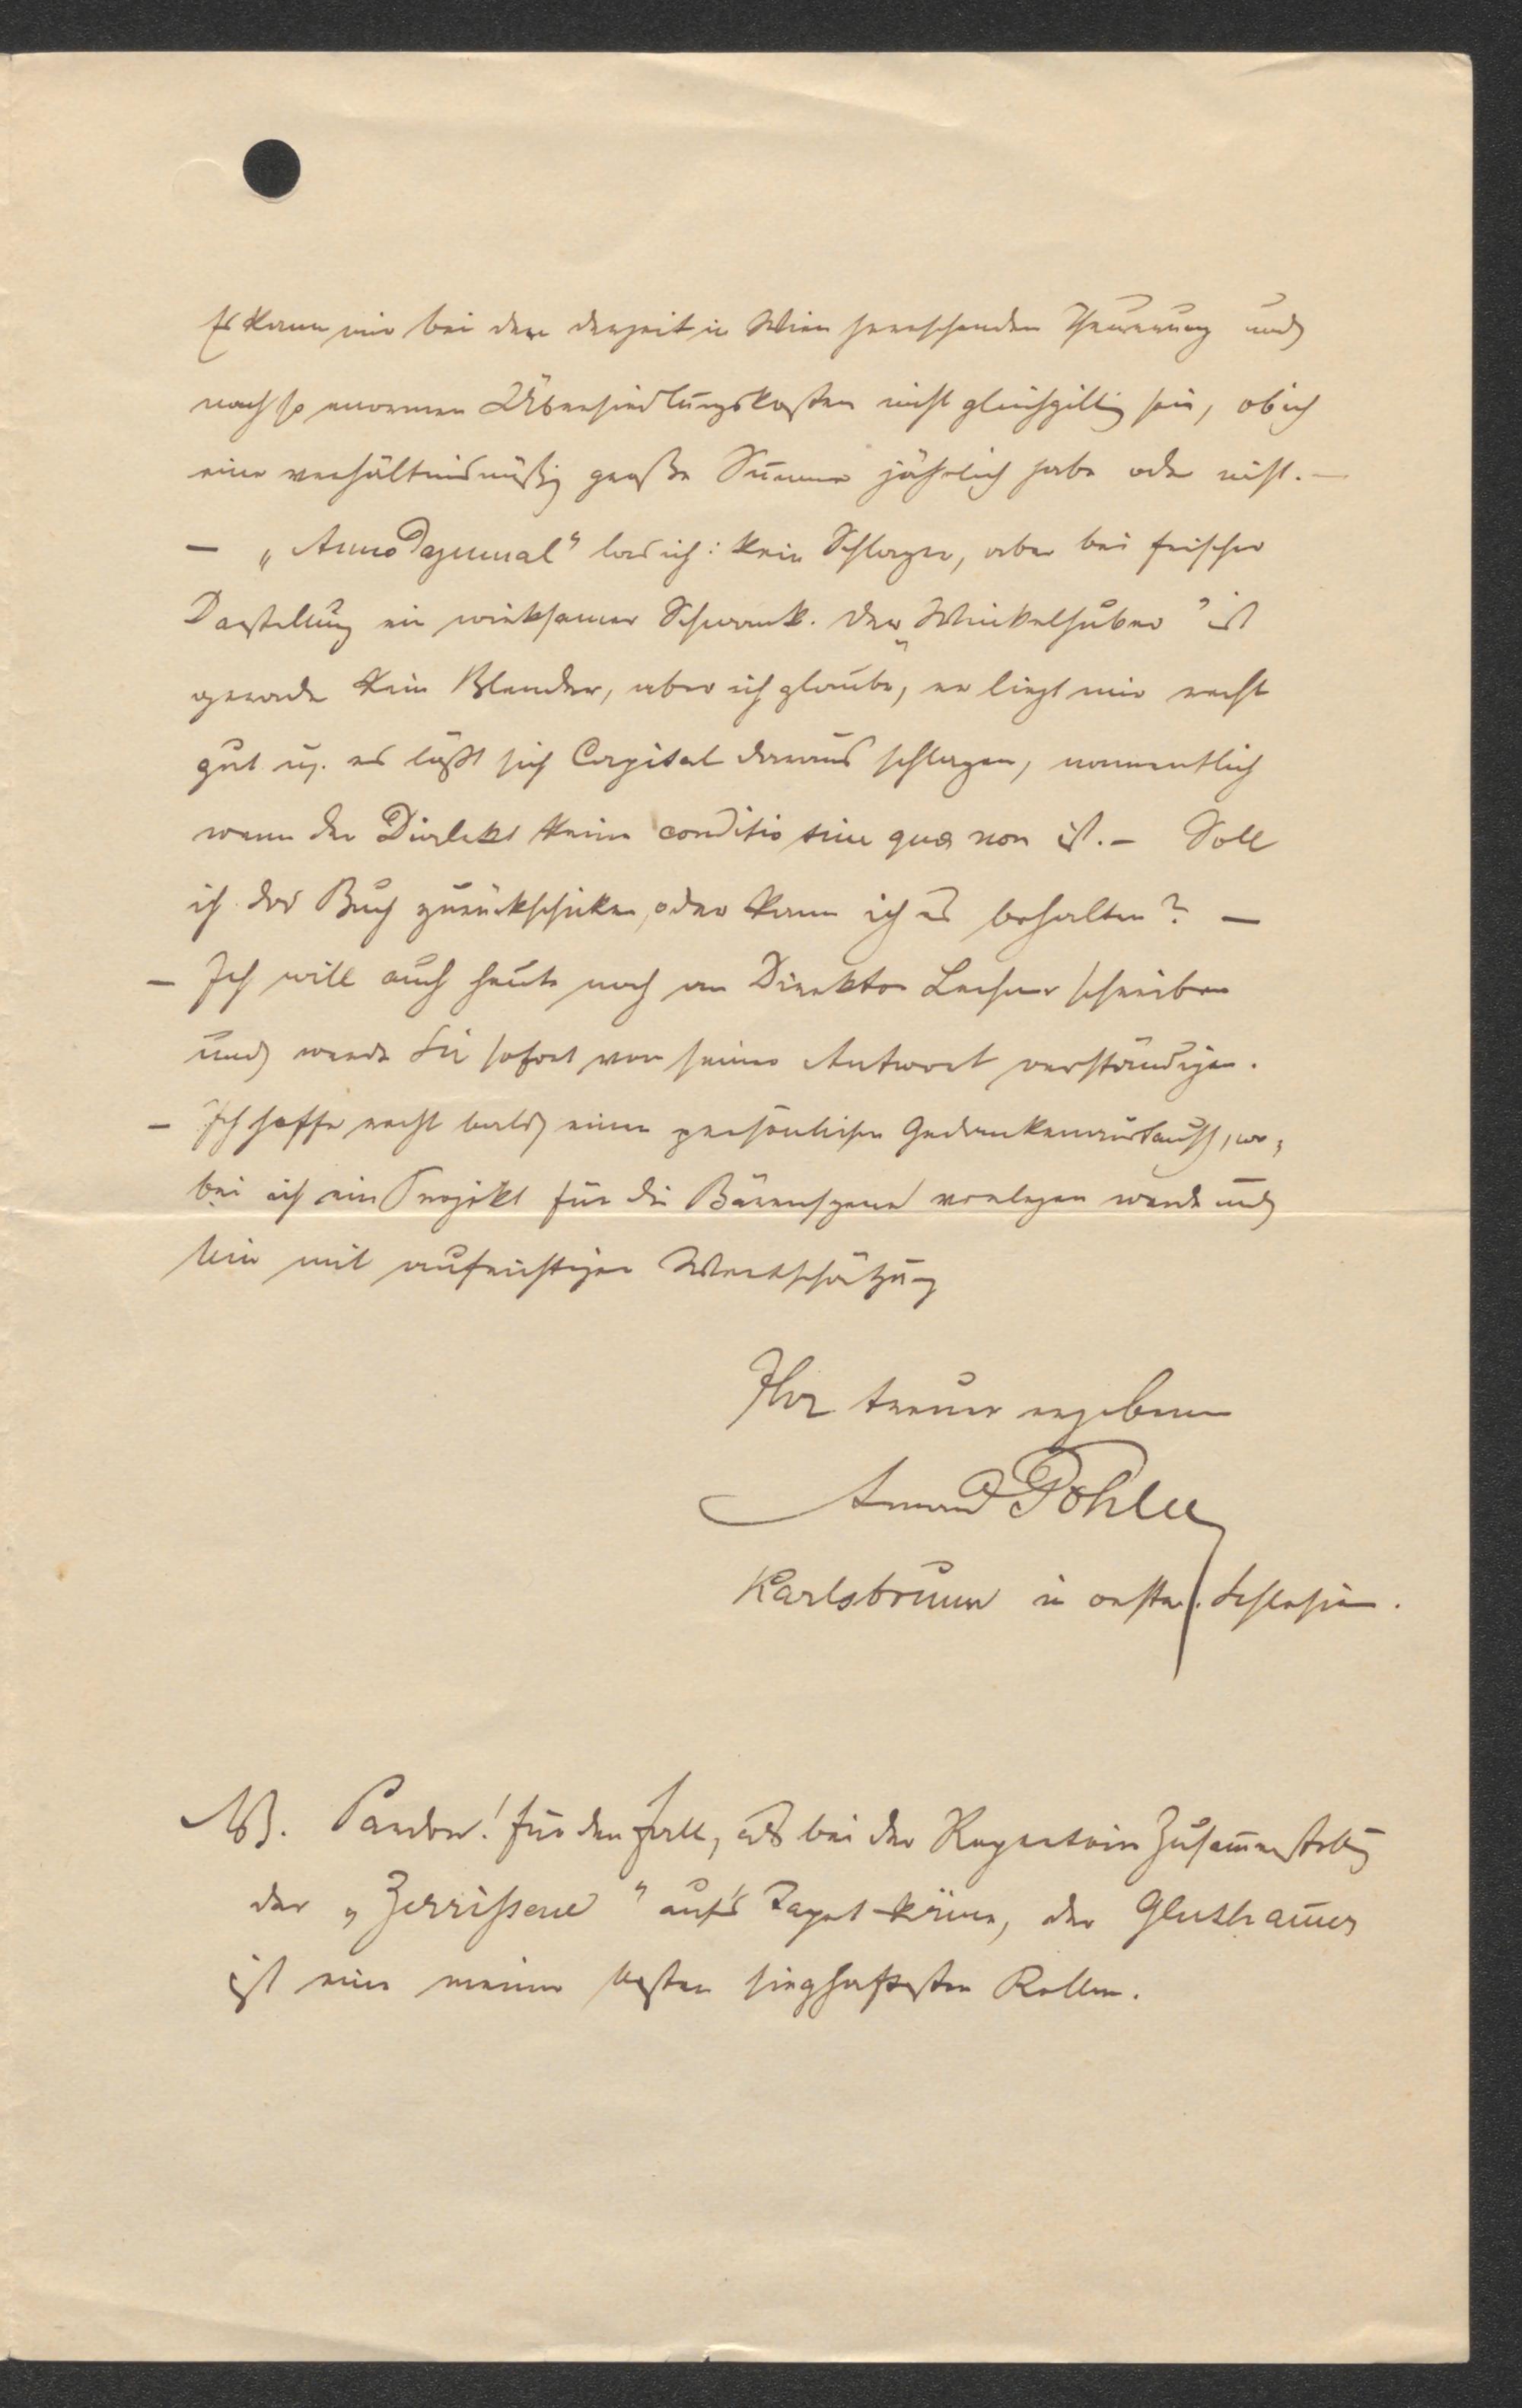 Es kann mir bei der derzeit in Wien herrschenden Theuerung und
nach so enormen Übersiedlungskosten nicht gleichgiltig sein, ob ich
eine verhältnismäßig große Summe jährlich habe oder nicht. —
— „Anno Dazumal" las ich: kein Schlager, aber bei frischer
Darstellung ein wirksamer Schwank. Der „Winkelhuber" ist
gerade kein Blender, aber ich glaube, er liegt mir recht
gut u. es läßt sich Capital daraus schlagen, namentlich
wenn der Dialekt keine conditio sine qua non ist. — Soll
ich das Buch zurückschicken, oder kann ich es behalten? —
— Ich will auch heute noch an Direktor Lechner schreiben
und werde Sie sofort von seiner Antwort verständigen.
— Ich hoffe recht bald einen persönlichen Gedankenaustausch, wo-
bei ich ein Projekt für die Bärenszene vorlegen werde und
bin mit aufrichtiger Wertschätzung
Ihr treuer ergebener
Amand Göhler
Karlsbrunn in oester. Schlesien.
NB. Pardon! für den Fall, als bei der Repertoir Zusam̄enstellg
der „Zerrißene" auf's Tapet käme, der Glutham̄er
ist eine meiner besten sieghaftesten Rollen.